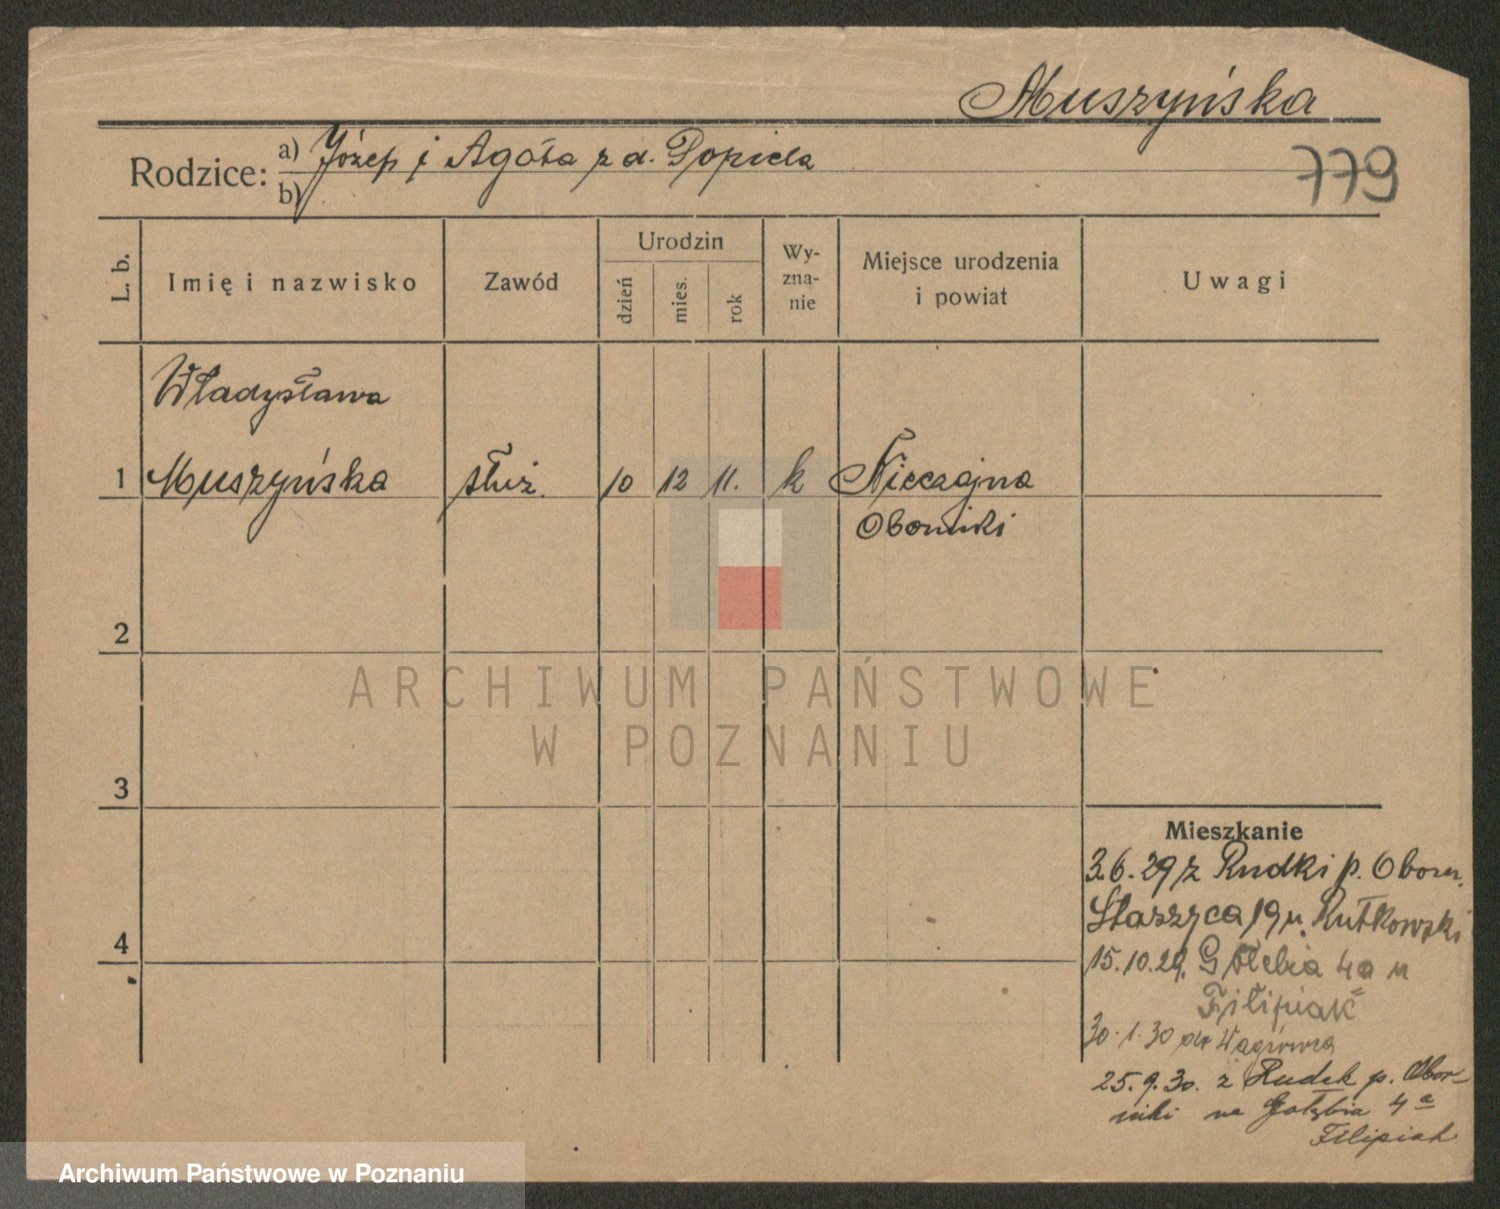 Muszyńska
Rodzice: a) Józef i Agata z d. Popiela
b)
779
L. b.
Imię i nazwisko
Zawód
Urodzin
dzień
mies.
rok
Wy-
zna-
nie
Miejsce urodzenia
i powiat
Uwagi
Władysława
1 Muszyńska służ. 10 12 11. k Nieczajna
Oborniki
2
3
4
Mieszkanie
3.6.29 z Rudki p. Oborn.
Staszyca 19 u. Rutkowski
15.10.29. Gołebia 4a u
Filipiak
30.1.30 do
25.9.30. z Rudek p. Obor-
niki na Gołębia 4a
Filipiak
ARCHIWUM PAŃSTWOWE
W POZNANIU
Archiwum Państwowe w Poznaniu